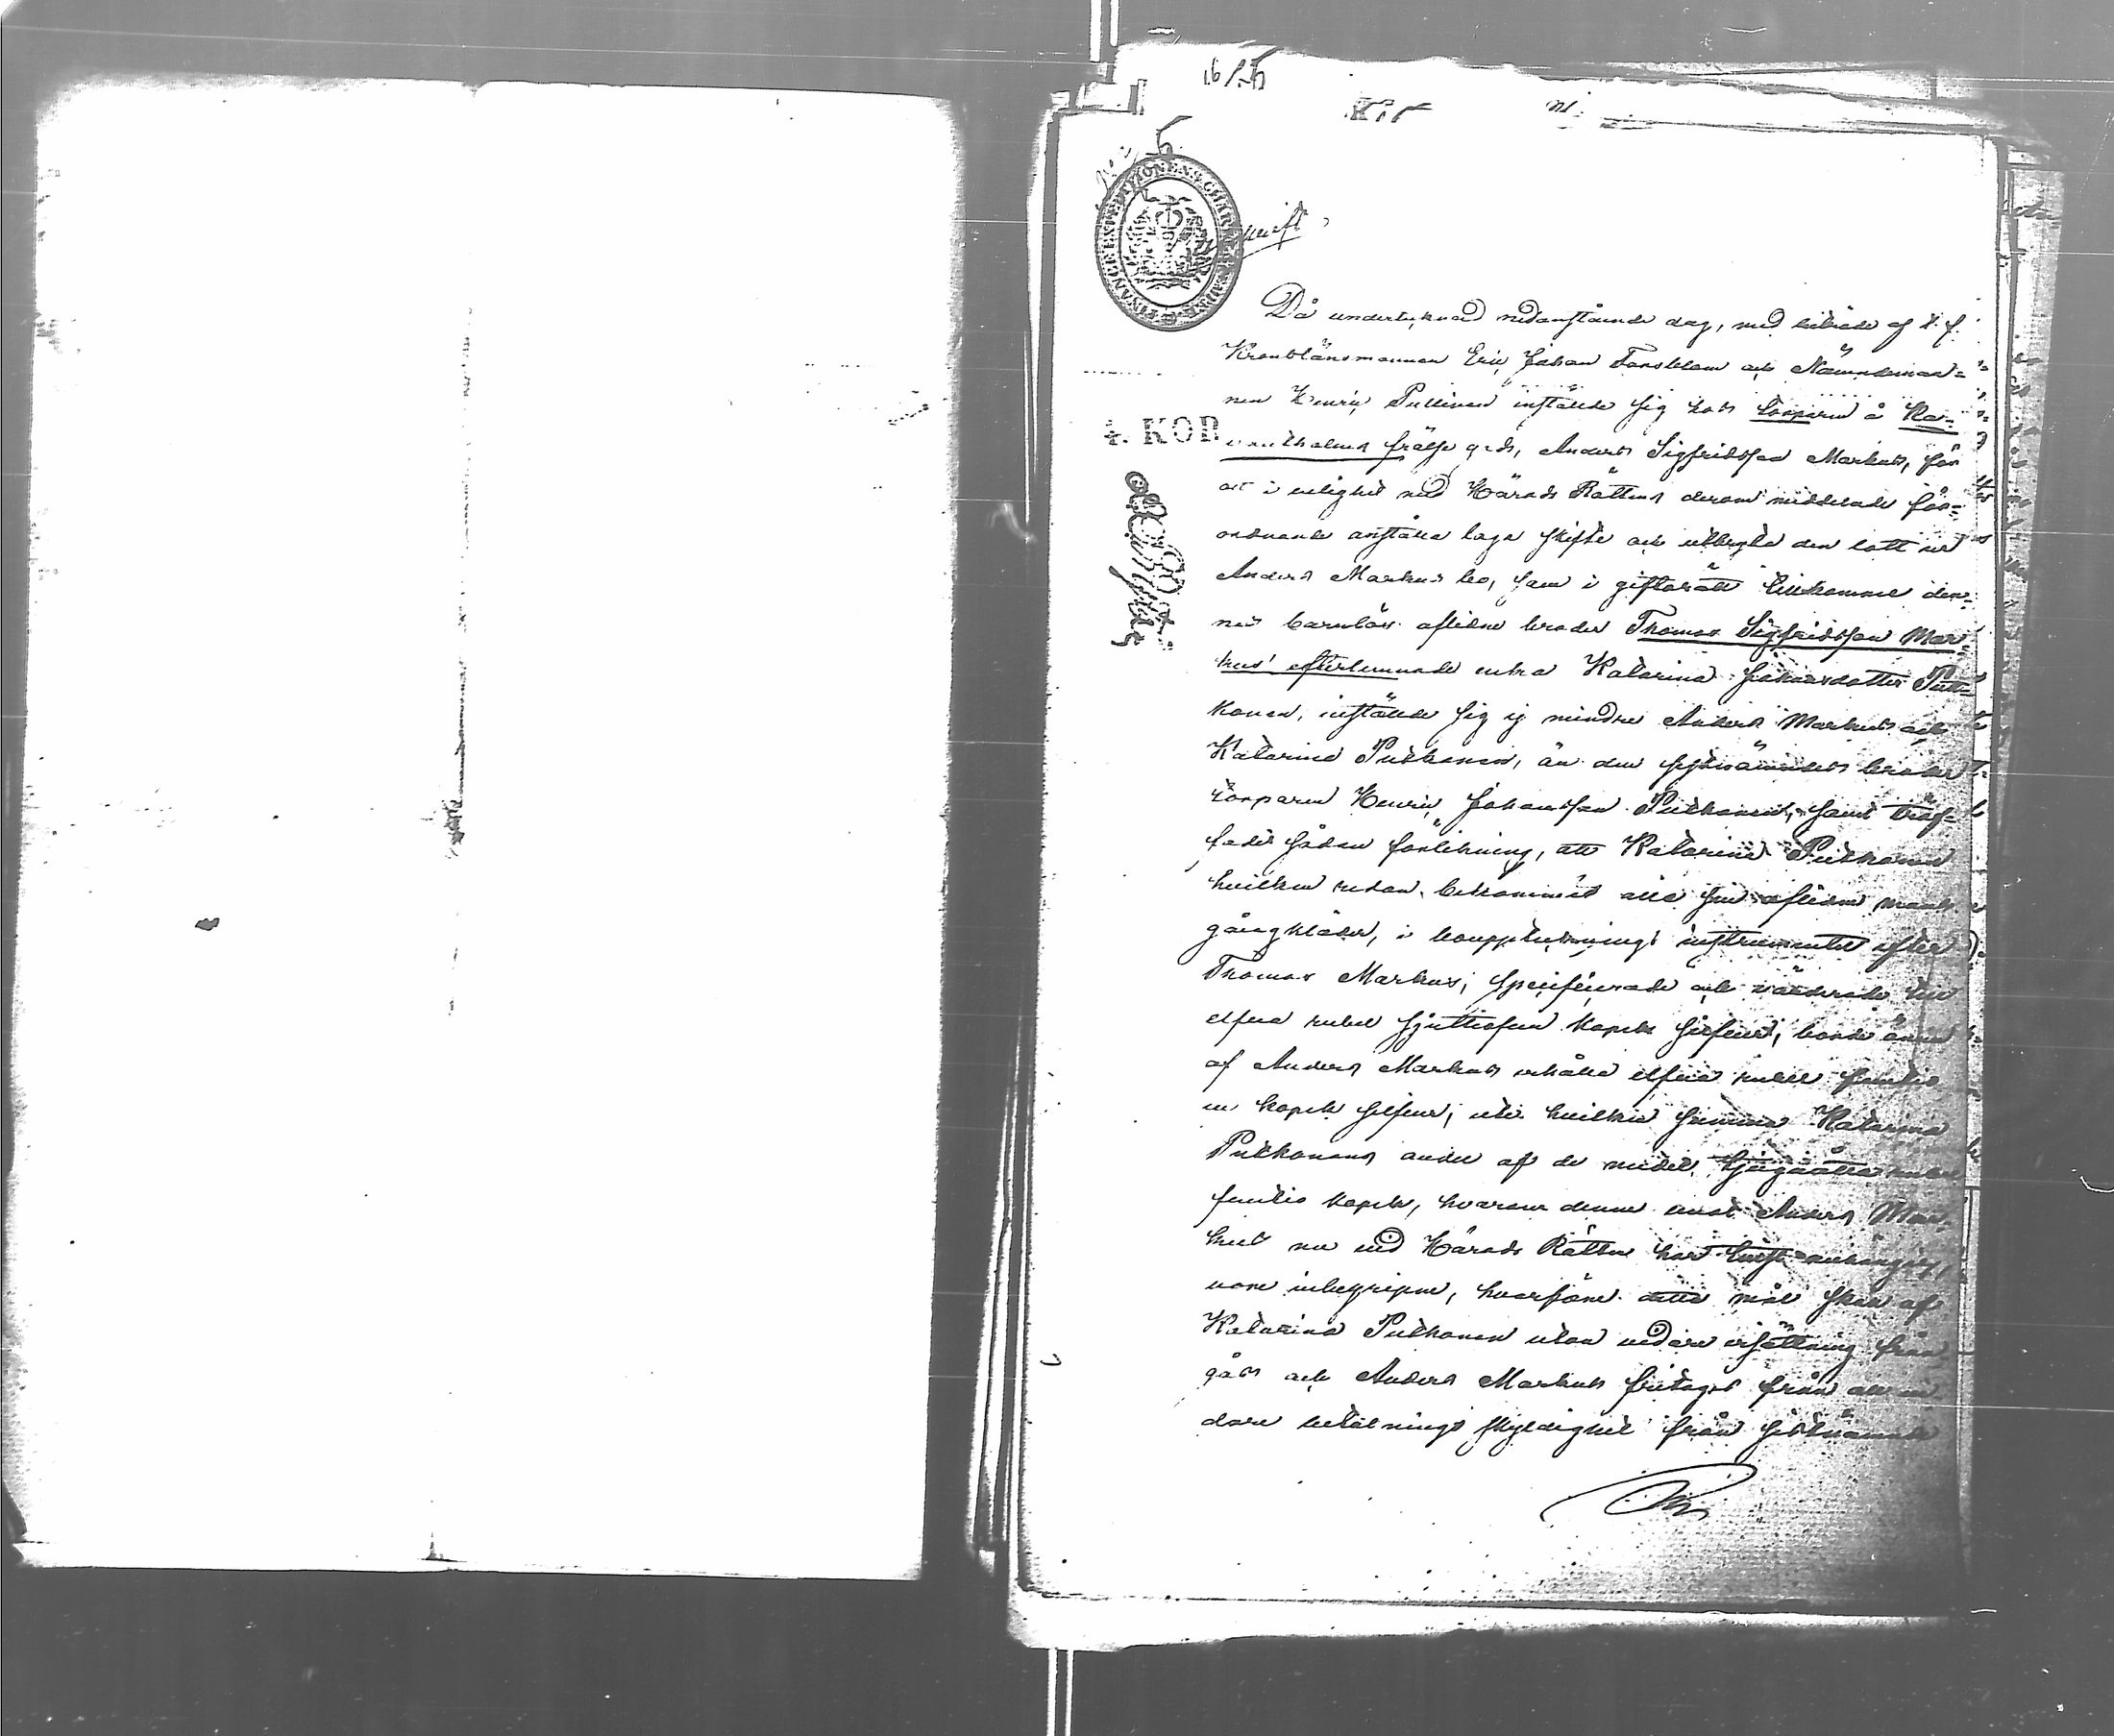 Då undertecknad nedanstående dag, med biträde af t. f.
Kronolänsmannen Eric Johan Forsblom och Nämndeman-
nen Henric Pullinen instälde sig hos torparen å Ka-
frälse gods, Anders Sigfridsson Markus, för
att i enlighet med Härads Rättens derom meddelade för-
ordnande anställa laga skifte och utbryta den lott ur
Anders Markus bo, som i giftorätt tillkommer den-
nes barnlös aflidne broder Thomas Sigfridsson Mar-
kus' efterlemnade enka Katarina Johansdotter Putt-
konen, instälde sig ej mindre Anders Markus och
Katarina Putkonen, än den sistnämndes broder
torparen Henric Johansson Putkonen, samt träf-
fades sådan förlikning, att Katarina Putkonen
hvilken redan bekommit alla sin aflidne mans
gångkläder, i bouppteckningsinstrumentet efter
Thomas Markus, specificerade och värderade till
elfva rubel sjuttiofem kopek silfver, borde ännu
af Anders Markus erhålla elfva rubel femtio
en kopek silfver, uti hvilken summa Katarina
Putkonens andel af de medel, tjuguåtta rubel
femtio kopek, hvarom denne emot Anders Mar-
kus nu vid Härads Rätten har tvist anhängig,
vore inbegripne, hvarföre detta mål skall af
Katarina Putkonen utan vidare ersättning från-
gås och Anders Markus fritagas från all vi-
dare betalnings skyldighet från sistnämnde